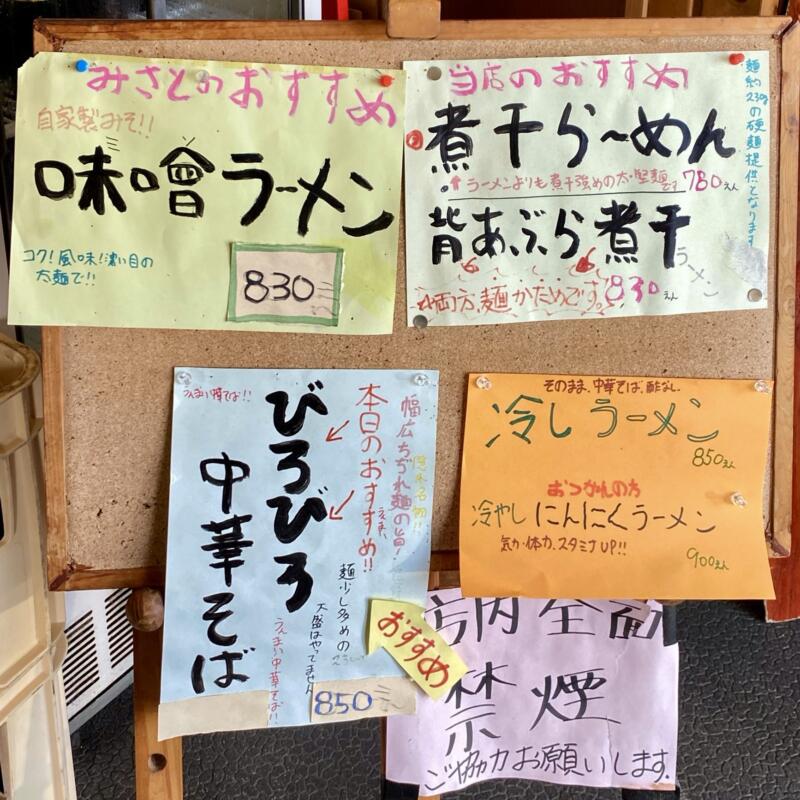 みさとのおすすめ
自家製みそ!!
味噌ラーメン
コク!風味!濃い目の
太麺で!!
830
当店のおすすめ
煮干らーめん
ラーメンよりも煮干強めの太・堅麺です
780えん
背あぶら煮干
ラーメン
両方、麺かためです。830えん
麺約230gの硬麺提供となります
うんまい中華そば!!
幅広ちぢれ麺の旨!
本日のおすすめ!!
びろびろ
中華そば
麺少し多めの
大盛はやってません
うんまい中華そば!!
850
おすすめ
そのまま、中華そば、酢なし
冷しラーメン
850えん
おつかれの方
冷やしにんにくラーメン
気力・体力、スタミナUP!!
900えん
禁煙
ご協力お願いします。